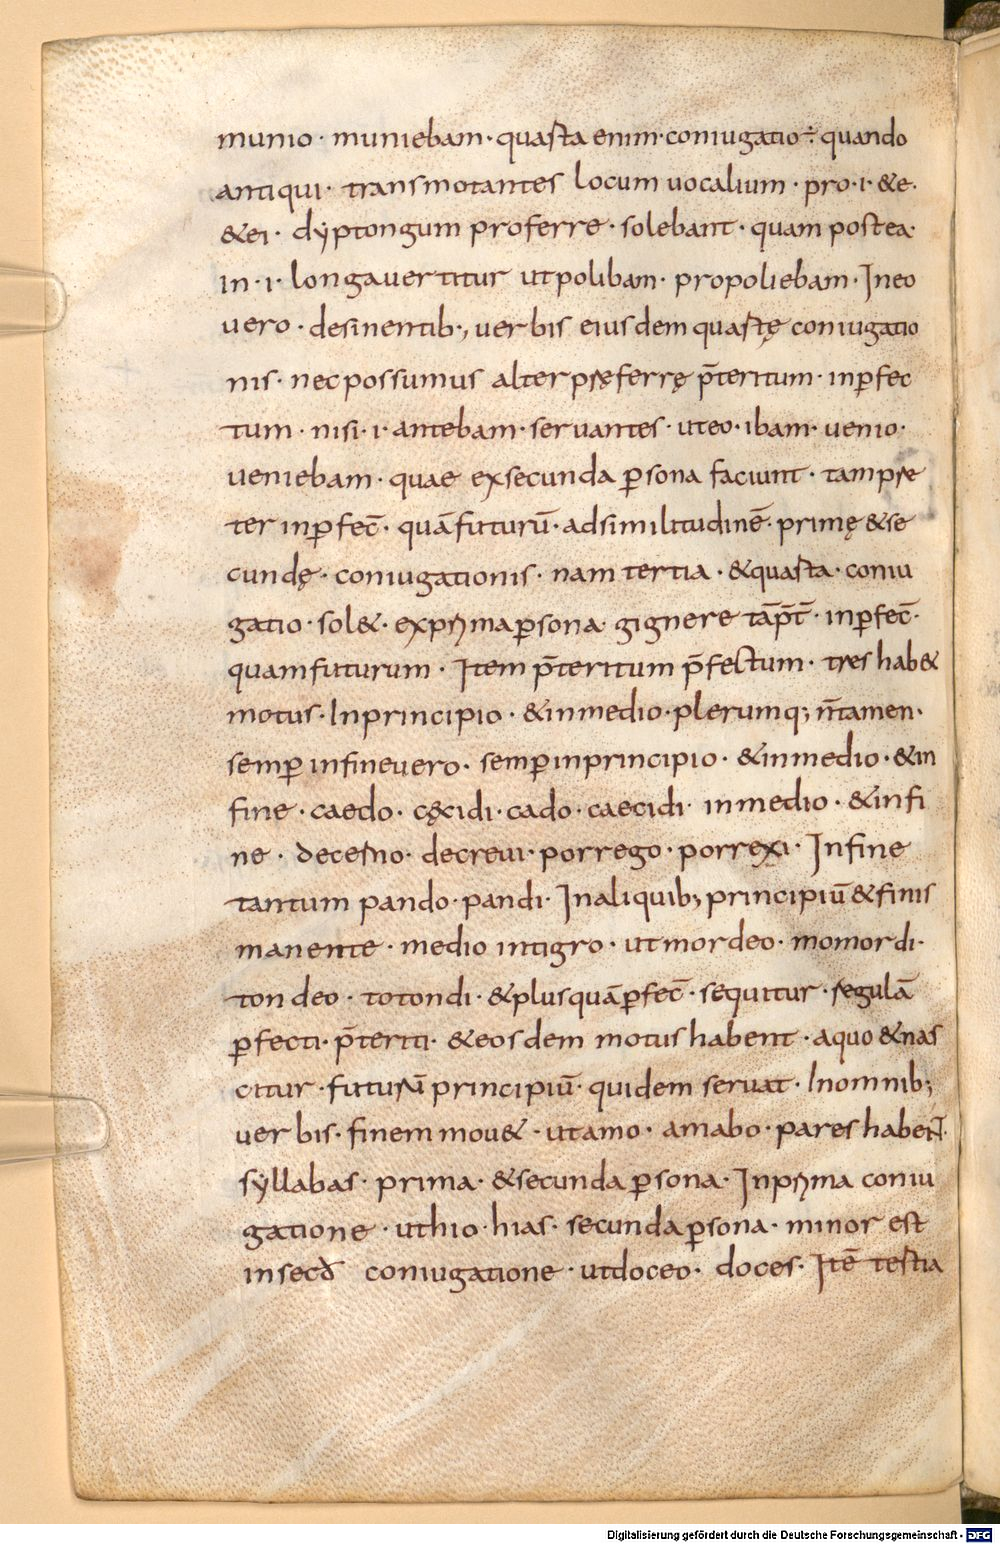 munio · muniebam · quasta enim · coniugatio ÷ quando
antiqui · transmotantes locum uocalium · pro · i · & e ·
& ei · dyptongum proferre · solebant · quam postea ·
in · i · longa uertitur ut polibam · propoliebam · In eo
uero · desinentib; uerbis eiusdem quastę coniugatio
nis · nec possumus alter pręferrę p̄teritum · inꝑfec
tum · nisi · i · ante bam · seruantes · ut eo · ibam · uenio ·
ueniebam · quae ex secunda ꝑsona faciunt · tam pre
ter inꝑfec̄ · quā futurū · ad similitudinē · primę & se
cundę · coniugationis · nam tertia · & quasta · coniu
gatio · sol& · ex prima ꝑsona · gignere tā p̄t̄ · inꝑfec̄ ·
quam futurum · Item p̄teritum p̄fectum · tres hab&
motus · In principio · & in medio · plerumq; n̄ tamen ·
semꝑ in fine uero · semꝑ in principio · & in medio · & in
fine · caedo · cęcidi · cado · caecidi · in medio · & in fi
ne · decerno · decreui · porrego · porrexi · In fine
tantum pando · pandi · In aliquib; principiū & finis
manente · medio intigro · ut mordeo · momordi ·
tondeo · totondi · & plus quā ꝑfec̄ · sequitur · regulā
ꝑfecti · p̄teriti · & eosdem motus habent · a quo & nas
citur · futurū principiū · quidem seruat · In omnib;
uerbis · finem mou& · ut amo · amabo · pares habent ·
syllabas · prima · & secunda ꝑsona · In prima coniu
gatione · ut hio · hias · secunda ꝑsona · minor est
in secd̄ coniugatione · ut doceo · doces · Itē testia
Digitalisierung gefördert durch die Deutsche Forschungsgemeinschaft - DFG